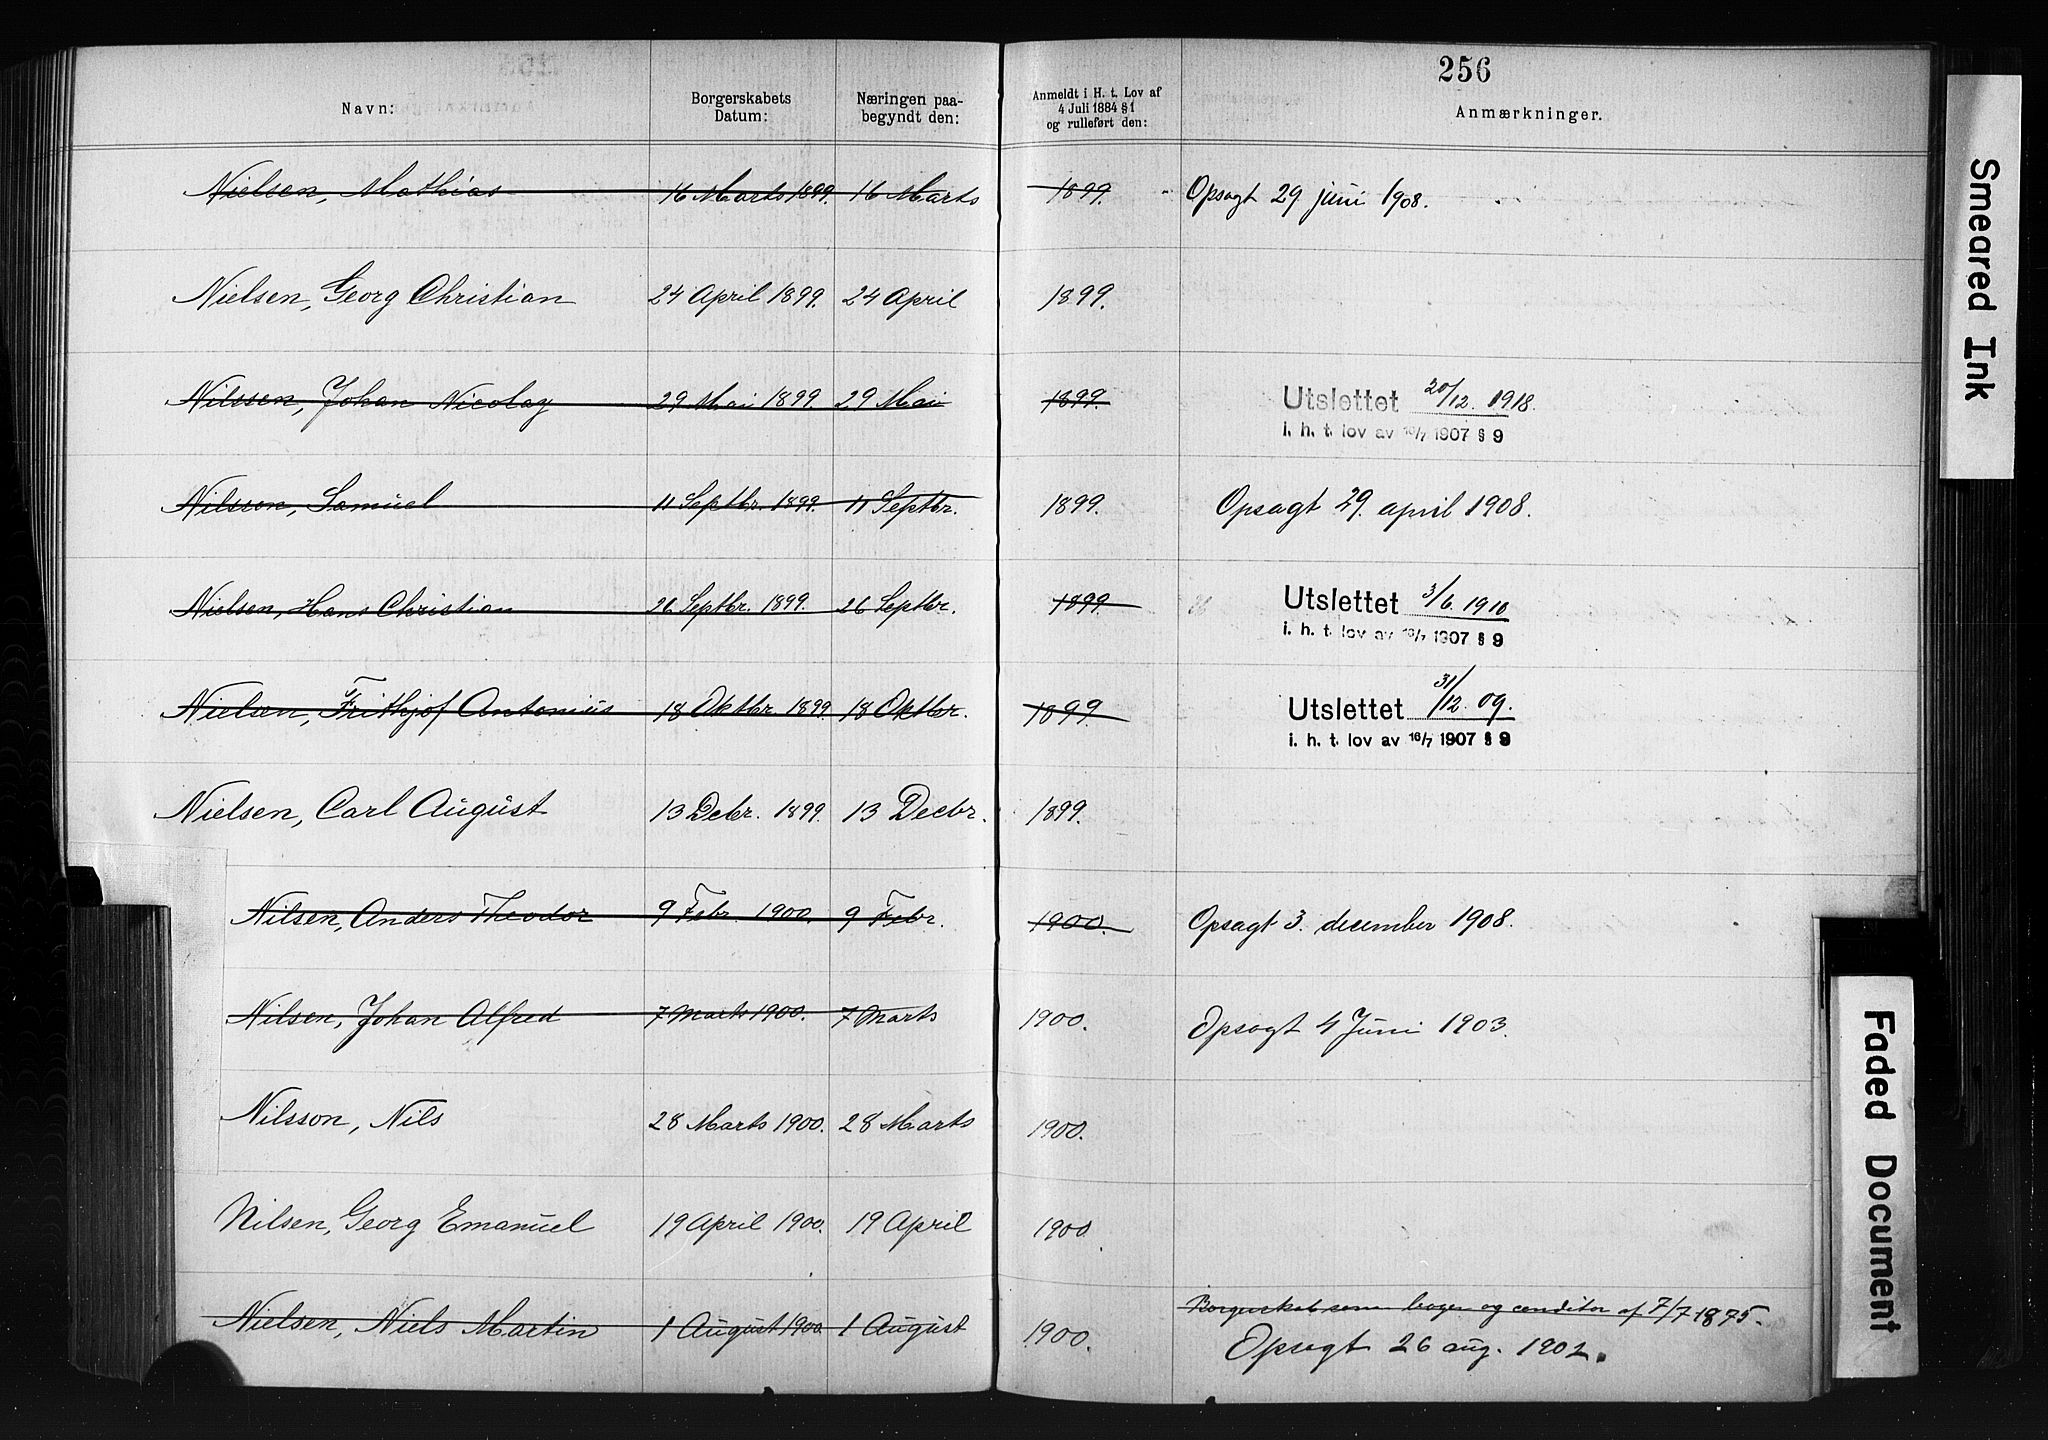 256
Navn:	Borgerskabets Datum:	Næringen paa-begyndt den:	Anmeldt i H. t. Lov af 4 Juli 1884 § 1 og rulleført den:	Anmærkninger.
Nielsen, Mathias	16 Marts 1899.	16 Marts	1899.	Opsagt 29 juni 1908.
Nielsen, Georg Christian	24 April 1899.	24 April	1899.
Nilssen, Johan Nicolay	29 Mai 1899.	29 Mai	1899.	Utslettet 20/12. 1918.
i. h. t. lov av 16/7 1907 § 9
Nilsson, Samuel	11 Septbr. 1899.	11 Septbr.	1899.	Opsagt 29. april 1908.
Nielsen, Hans Christian	26 Septbr. 1899.	26 Septbr.	1899.	Utslettet 3/6. 1910
i. h. t. lov av 16/7 1907 § 9
Nielsen, Frithjof Antonius	18 Oktbr. 1899.	18 Oktbr.	1899	Utslettet 31/12. 09.
i. h. t. lov av 16/7 1907 § 9
Nielsen, Carl August	13 Debr. 1899.	13 Decbr.	1899.
Nilsen, Anders Theodor	9 Febr. 1900.	9 Febr.	1900.	Opsagt 3. december 1908.
Nilsen, Johan Alfred	7 Marts 1900.	7 Marts	1900.	Opsagt 4 Juni 1903.
Nilsson, Nils	28 Marts 1900.	28 Marts	1900.
Nilsen, Georg Emanuel	19 April 1900.	19 April	1900.
Nielsen, Niels Martin	1 August 1900	1 August	1900.	Borgerskab som bager og conditor af 7/7 1875.
Opsagt 26 aug. 1902.
Smeared Ink
Faded Document